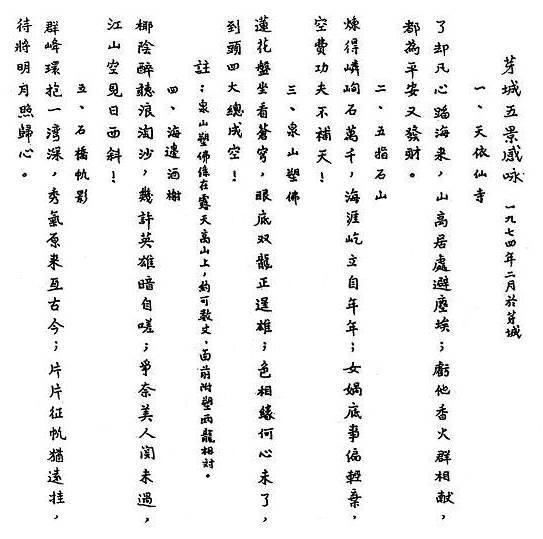 芽城五景感咏　一九七四年二月於芽城
一、天依仙寺
了却凡心蹈海来，山高居處避塵埃；虧他香火群相献，
都為平安又發財。
二、五指石山
煉得嶙峋石萬千，海涯屹立自年年；女媧底事偏輕棄，
空費功夫不補天！
三、泉山塑佛
蓮花盤坐看蒼穹，眼底双龍正逞雄；色相緣何心未了，
到頭四大總成空！
註：泉山塑佛係在露天高山上，約可数丈，面前附塑两龍相对。
四、海邊酒榭
椰陰醉聽浪淘沙，幾許英雄暗自嗟；爭奈美人関未過，
江山空見日西斜！
五、石橋帆影
群峰環抱一湾深，秀氣原来亙古今；片片征帆猶遠挂，
待將明月照歸心。